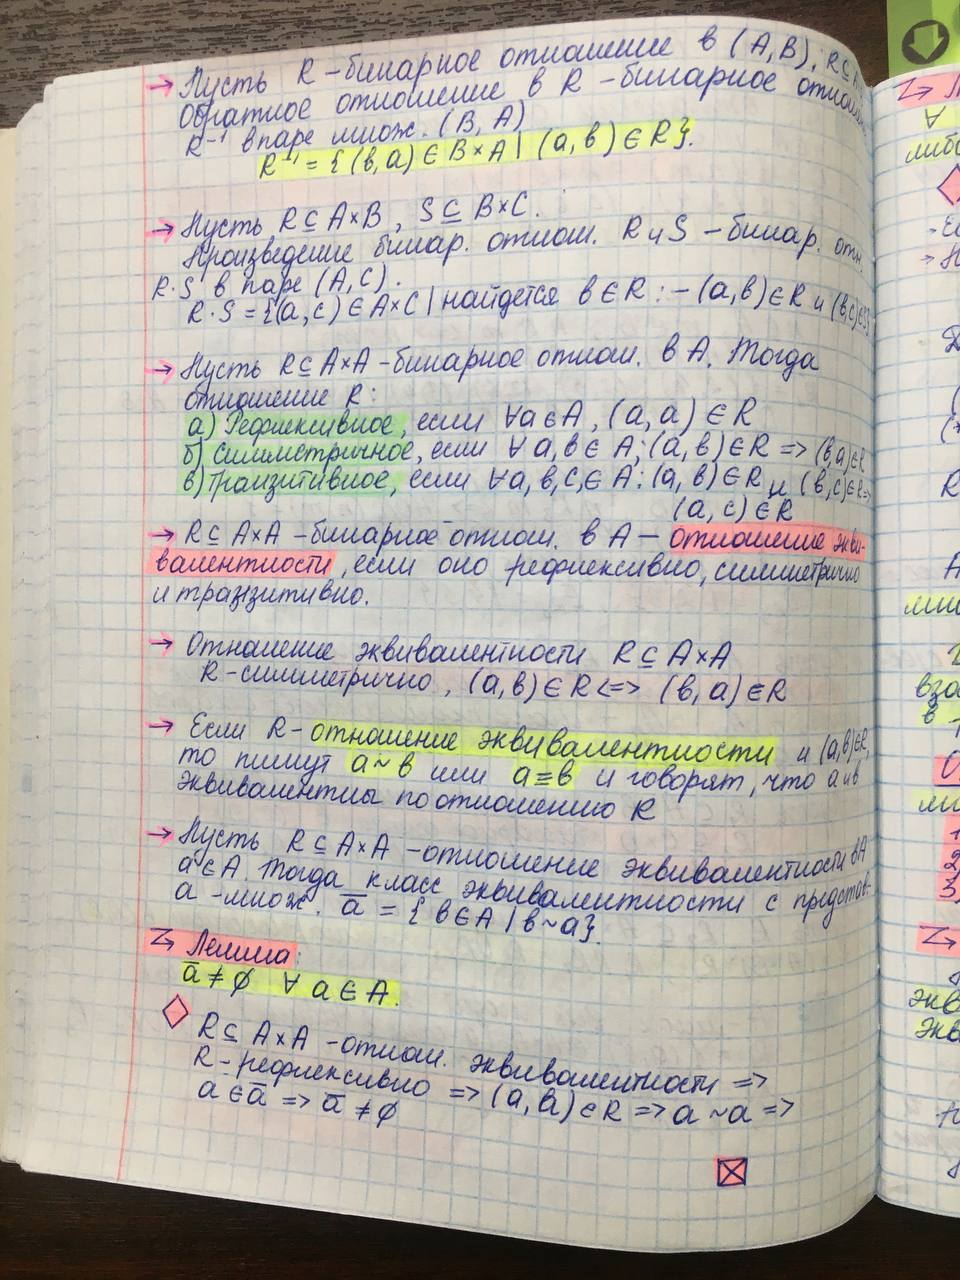 → Пусть R - бинарное отношение в (A, B), R⊆
Обратное отношение в R - бинарное отнош.
R⁻¹ в паре множ. (B, A)
R⁻¹ = {(в,а) ∈ B×A | (а, в) ∈ R}.
→ Пусть R⊆A×B, S⊆B×C.
Произведение бинар. отнош. R и S - бинар. отн.
R·S в паре (A, C).
R·S = {(а, с) ∈ A×C | найдется в∈R : - (а, в)∈R и (в,с)∈S}
→ Пусть R⊆A×A - бинарное отнош. в A. Тогда
отношение R:
а) Рефлексивное, если ∀а∈A, (а, а) ∈ R
б) Симметричное, если ∀ а, в ∈ A; (а, в) ∈ R => (в,а)∈R
в) Транзитивное, если ∀а, в, с, ∈ A : (а, в) ∈ R и (в, с)∈R =>
(а, с) ∈ R
→ R⊆A×A - бинарное отнош. в A — отношение экви-
валентности, если оно рефлексивно, симметрично
и транзитивно.
→ Отношение эквивалентности R⊆A×A
R - симметрично, (а, в) ∈ R <=> (в, а) ∈ R
→ Если R - отношение эквивалентности и (а,в)∈R,
то пишут а ~ в или а ≡ в и говорят, что а и в
эквивалентны по отношению R
→ Пусть R⊆A×A - отношение эквивалентности в A
а∈A. Тогда класс эквивалентности с представ.
а - множ. а̅ = { в∈A | в ~ а}.
Лемма:
а̅ ≠ ∅ ∀ а ∈ A.
◇ R⊆A×A - отнош. эквивалентности =>
R - рефлексивно => (а, а) ∈ R => а ~ а =>
а ∈ а̅ => а̅ ≠ ∅
⊠
∀
либо